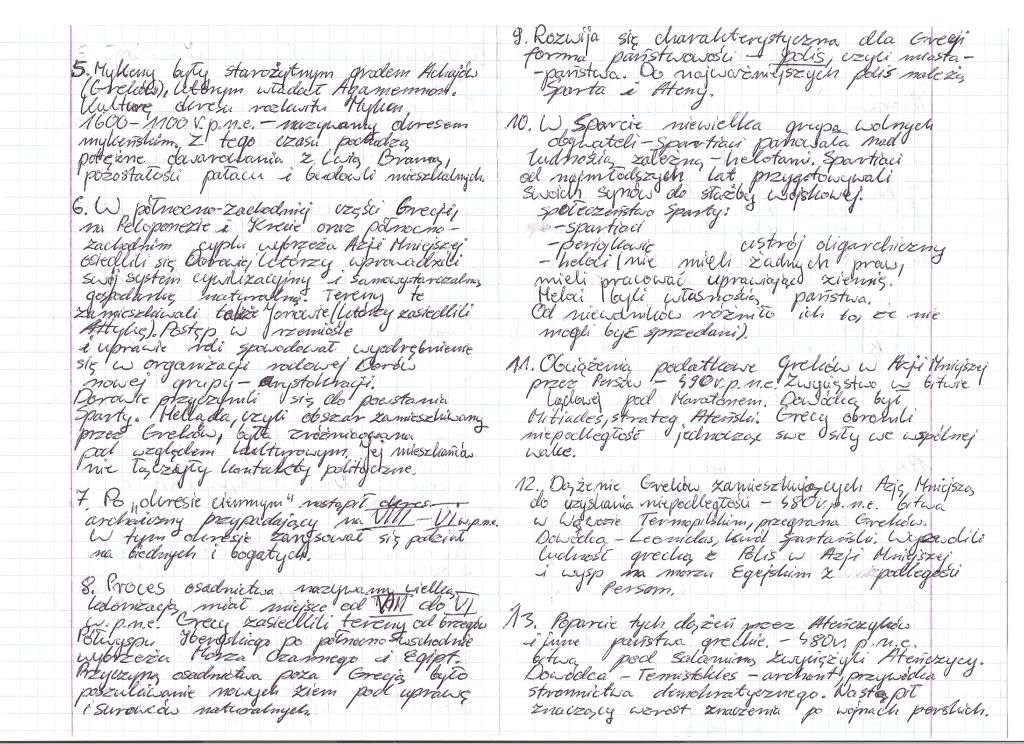 5. Mykeny były starożytnym grodem Achajów
(Greków), którym władał Agamemnon.
Kulturę okresu rozkwitu Myken
1600-1100 r. p.n.e. – nazywamy okresem
mykeńskim. Z tego czasu pochodzą
potężne obwarowania z Lwią Bramą,
pozostałości pałacu i budowli mieszkalnych.
6. W północno-zachodniej części Grecji,
na Peloponezie i Krecie oraz północno-
zachodnim cyplu wybrzeża Azji Mniejszej
osiedlili się Dorowie, którzy wprowadzili
swój system cywilizacyjny i samowystarczalną
gospodarkę naturalną. Tereny te
zamieszkiwali także Jonowie (którzy zasiedlili
Attykę). Postęp w rzemiośle
i uprawie roli spowodował wyodrębnienie
się w organizacji rodowej Dorów
nowej grupy – arystokracji.
Dorowie przyczynili się do powstania
Sparty. Hellada, czyli obszar zamieszkiwany
przez Greków, była zróżnicowana
pod względem kulturowym. Jej mieszkańców
nie łączyły kontakty polityczne.
7. Po „okresie ciemnym" nastąpił okres
archaiczny przypadający na VIII – VI w. p.n.e.
W tym okresie zarysował się podział
na biednych i bogatych.
8. Proces osadnictwa nazywamy wielką
kolonizacją, miał miejsce od VIII do VI
w. p.n.e. Grecy zasiedlili tereny od brzegów
Półwyspu Iberyjskiego po północno-wschodnie
wybrzeża Morza Czarnego i Egipt.
Przyczyną osadnictwa poza Grecją było
poszukiwanie nowych ziem pod uprawę
i surowców naturalnych.
9. Rozwija się charakterystyczna dla Grecji
forma państwowości – polis, czyli miasta-
-państwa. Do najważniejszych polis należą
Sparta i Ateny.
10. W Sparcie niewielka grupa wolnych
obywateli – Spartiaci panowała nad
ludnością zależną – helotami. Spartiaci
od najmłodszych lat przygotowywali
swoich synów do służby wojskowej.
społeczeństwo Sparty:
- spartiaci
- periojkowie ustrój oligarchiczny
- heloci (nie mieli żadnych praw,
mieli pracować uprawiając ziemię.
Heloci byli własnością państwa.
Od niewolników różniło ich to, że nie
mogli być sprzedani).
11. Obciążenia podatkowe Greków w Azji Mniejszej
przez Persów – 490 r. p.n.e. Zwycięstwo w bitwie
lądowej pod Maratonem. Dowódcą był
Miltiades, strateg Ateński. Grecy obronili
niepodległość jednocząc swe siły we wspólnej
walce.
12. Dążenie Greków zamieszkujących Azję Mniejszą
do uzyskania niepodległości – 480 r. p.n.e. bitwa
w Wąwozie Termopilskim, przegrana Greków.
Dowódca – Leonidas, król spartański. Wyzwolili
ludność grecką z Polis w Azji Mniejszej
i wysp na morzu Egejskim z podległości
Persom.
13. Poparcie tych dążeń przez Ateńczyków
i inne państwa greckie. – 480 r. p.n.e.
bitwa pod Salaminą zwyciężyli Ateńczycy.
Dowódca – Temistokles – archont, przywódca
stronnictwa demokratycznego. Nastąpił
znaczący wzrost znaczenia po wojnach perskich.